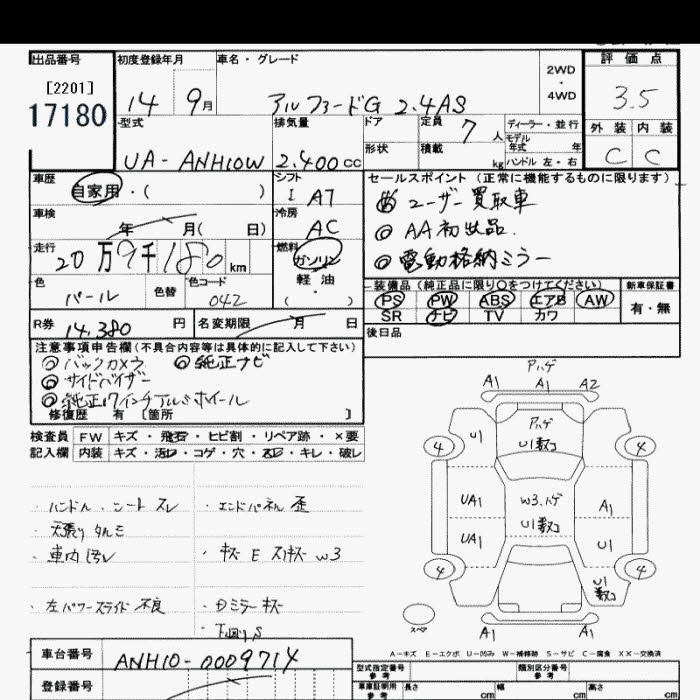 出品番号
[2201]
17180
初度登録年月
14 9月
車名・グレード
アルファードG 2.4AS
2WD
・
4WD
評価点
3.5
外装 内装
C C
型式
UA-ANH10W
排気量
2.400cc
ドア
定員 7人
ディーラー・並行
モデル年式 年
形状
積載 kg
ハンドル 左・右
車歴
自家用・( )
シフト
I AT
車検
年 月( 日)
冷房
AC
走行
20万9千180km
燃料
ガソリン
軽油
( )
色
パール
色替
色コード
042
R券
14.380円
名変期限 月 日
セールスポイント (正常に機能するものに限ります)
◎ユーザー買取車
◎AA初出品.
◎電動格納ミラー
装備品(純正品に限り○をつけてください)
PS PW ABS エアB AW
SR ナビ TV カワ
新車保証書
有・無
後日品
注意事項申告欄(不具合内容等は具体的に記入して下さい)
◎バックカメラ ◎純正ナビ
◎サイドバイザー
◎純正17インチアルミホイール
修復歴 有 〔箇所 〕
検査員 FW キズ・飛石・ヒビ割・リペア跡・×要
記入欄 内装 キズ・汚レ・コゲ・穴・スレ・キレ・破レ
・ハンドル、シート スレ
・天張り タルミ
・車内 汚レ
・左パワースライド 不良
・エンドパネル 歪
・キズ E スリキズ W3
・ミラー キズ
・下回りS
アハゲ
A1 A1 A2
アハゲ
U1 U1数コ
4 4
UA1 W3.ハゲ A1
U1数コ
UA1 U1
4 4
U1
数コ
スペア
A1 A1
A-キズ E-エクボ U-凹み W-補修跡 S-サビ C-腐食 XX-交換済
車台番号
ANH10-0009714
登録番号
型式指定番号
参考
類別区分番号
参考
車庫証明用
参考
長さ cm
幅 cm
高さ cm